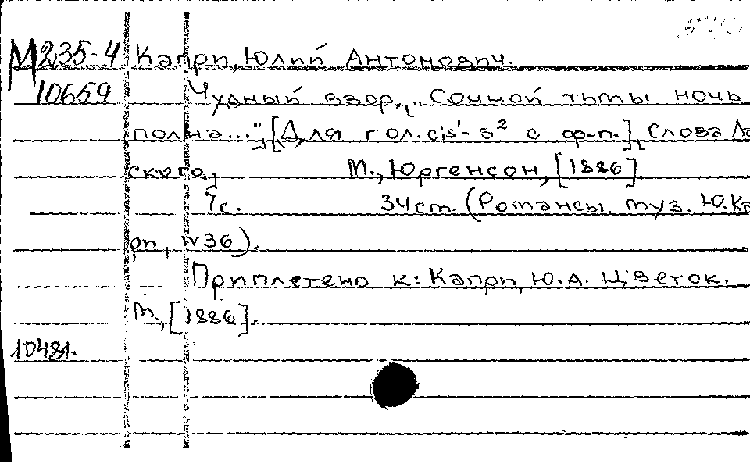 М235-4 Капри, Юлий Антонович.
10659 Чудный взор. „Сонной тьмы ночь
полна..." [Для гол. cis¹-a² с ф-п.]. Слова
ского.
М., Юргенсон, [1886]
7с. 34 ст. (Романсы. муз. Ю. Ка
при, №36).
Приплетено к: Капри, Ю.А. Цветок.
М., [1886].
10481.